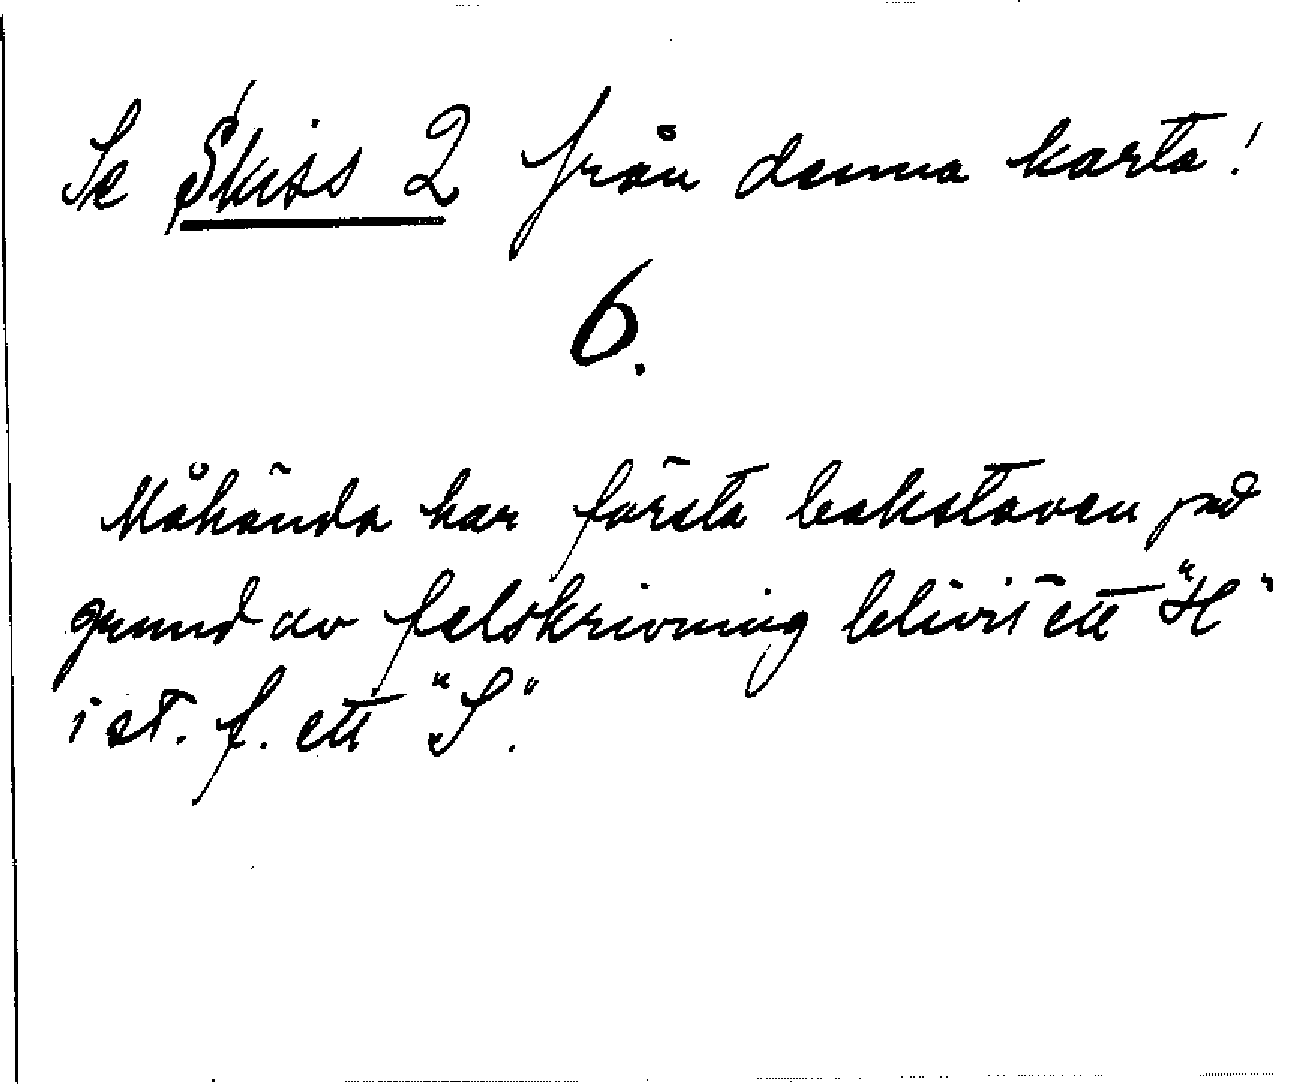 Se Skiss 2 från denna karta!
6.
Måhända har första bokstaven på
grund av felskrivning blivit ett "H"
i st. f. ett "S".